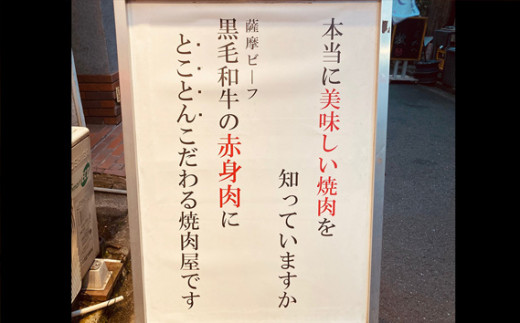 本当に美味しい焼肉を
知っていますか
薩摩ビーフ
黒毛和牛の赤身肉に
とことんこだわる焼肉屋です